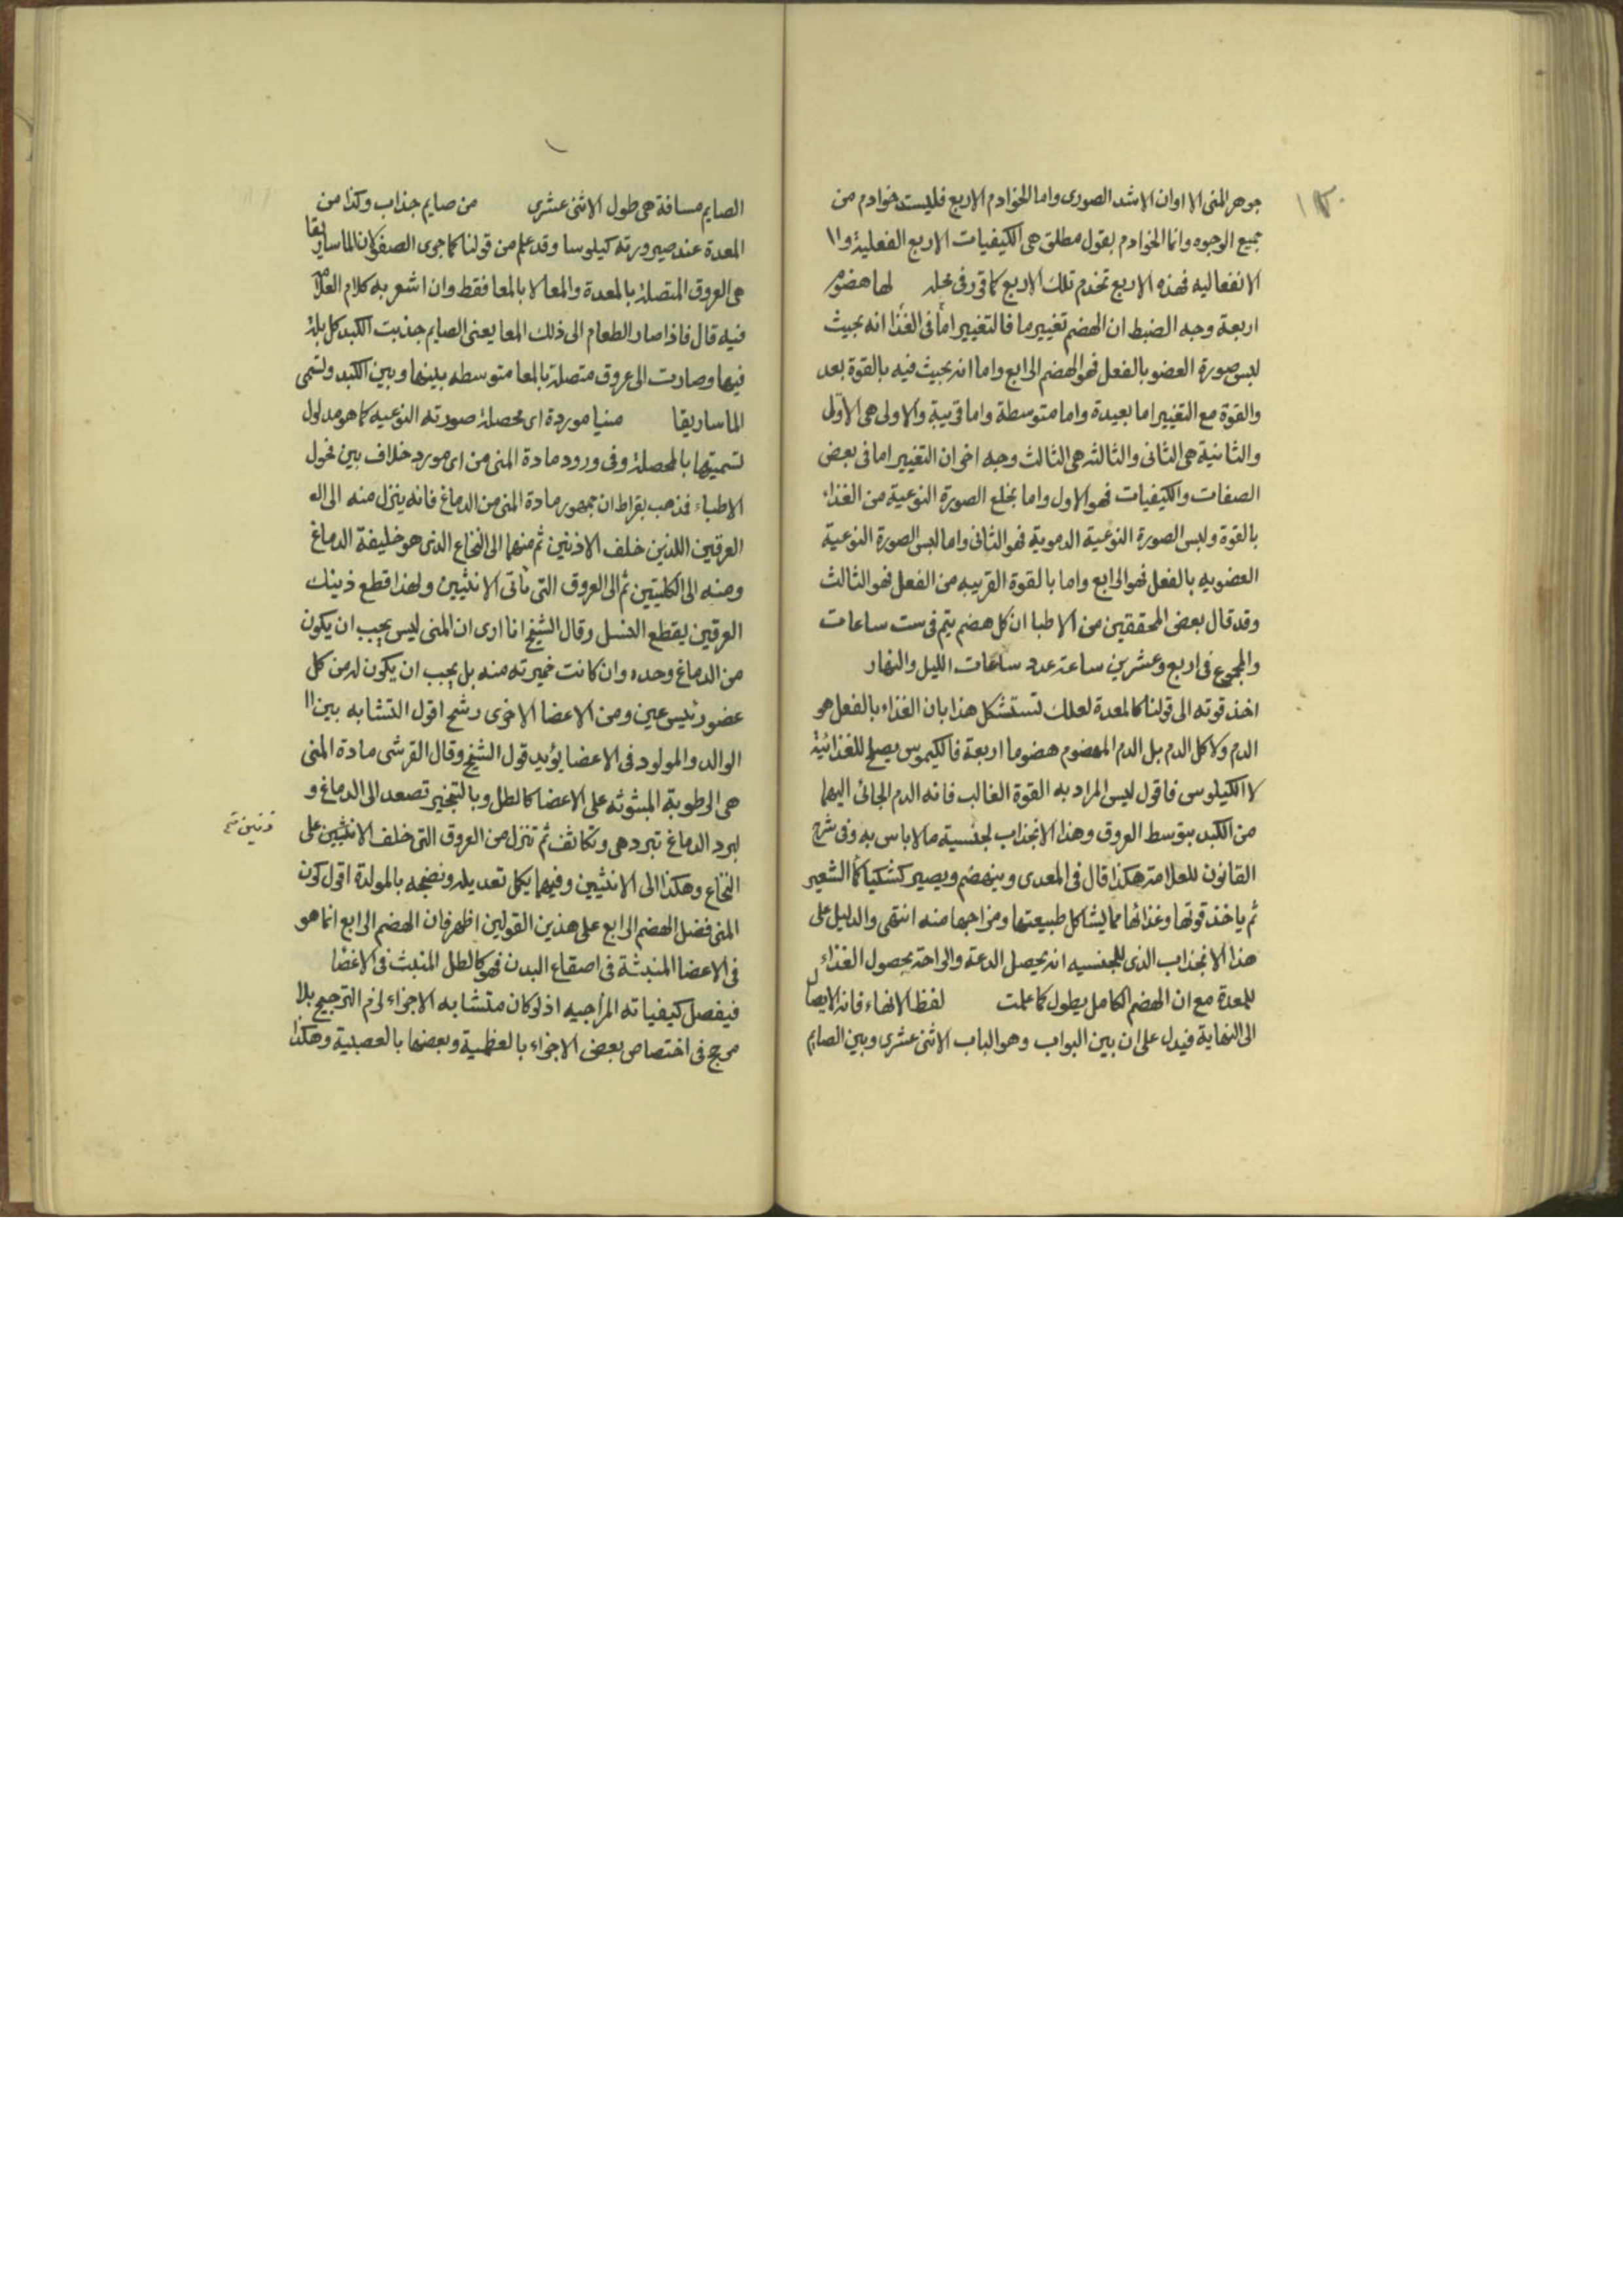 ١٣٠
جوهر المنى الا اوان الاشد الصورى واما الخوادم الاربع فليست خوادم من
جميع الوجوه وانما الخوادم بقول مطلق هى الكيفيات الاربع الفعلية وا
الانفعاليه فهذه الاربع تخدم تلك الاربع كما قرر فى محله لها هضوم
اربعة وجه الضبط ان الهضم تغيير ما فالتغيير اما فى الغذا انه بحيث
لبس صورة العضو بالفعل فهو الهضم الرابع واما انه بحيث فيه بالقوة بعد
والقوة مع التغيير اما بعيدة واما متوسطة واما قريبة والاولى هى الاول
والثانية هى الثانى والثالثه هى الثالث وجه اخر ان التغيير اما فى بعض
الصفات والكيفيات فهو الاول واما بخلع الصورة النوعية من الغذاء
بالقوة ولبس الصورة النوعية الدموية فهو الثانى واما لبس الصورة النوعية
العضويه بالفعل فهو الرابع واما بالقوة القريبه من الفعل فهو الثالث
وقد قال بعض المحققين من الاطبا ان كل هضم يتم فى ست ساعات
والمجموع فى اربع وعشرين ساعة عدد ساعات الليل والنهار
اخذ قوته الى قولنا كالمعدة لعلك تستشكل هذا بان الغذاء بالفعل هو
الدم ولا كل الدم بل الدم المهضوم هضوما اربعة فالكيموس يصلح للغذائية
لا الكيلوسى فاقول ليس المراد به القوة الغالب فانه الدم الجائى اليها
من الكبد بتوسط العروق وهذا الانجذاب لجنسية ما لاباس به وفى شرح
القانون للعلامة هكذا قال فى المعدى وينهضم ويصير كشكيا كما الشعير
ثم ياخذ قوتها وغذائها مما يشاكل طبيعتها ومزاجها منه انتهى والدليل على
هذا الانجذاب الذى للجنسيه انه يحصل الدعة والراحة بحصول الغذاء
للمعدة مع ان الهضم الكامل يطول كما علمت لفظ الانهاء فانه الايصال
الى النهاية فيدل على ان بين البواب وهو الباب الاثنى عشرى وبين الصايم
الصايم مسافة هى طول الاثنى عشرى من صايم جذاب وكذا من
المعدة عند صيرورته كيلوسا وقد علم من قولنا كما جرى الصفو كان الماساريقا
هى العروق المتصلة بالمعدة والمعا لا بالمعا فقط وان اشعر به كلام العلامة
فيه قال فاذا صار الطعام الى ذلك المعا يعنى الصايم جذبت الكبد كل بلة
فيها وصارت الى عروق متصلة بالمعا متوسطه بينها وبين الكبد وتسمى
الماساريقا منيا موردة اى محصلة صورته النوعيه كما هو مدلول
تسميتها بالمحصلة وفى ورود مادة المنى من اى مورد خلاف بين فحول
الاطباء فذهب بقراط ان جمهور مادة المنى من الدماغ فانه ينزل منه الى اله
العرقين اللذين خلف الاذنين ثم منهما الى النخاع الذى هو خليفة الدماغ
ومنه الى الكليتين ثم الى العروق التى تأتى الانثيين ولهذا قطع ذينك
العرقين يقطع النسل وقال الشيخ انا ارى ان المنى ليس يجب ان يكون
من الدماغ وحده وان كانت خميرته منه بل يجب ان يكون له من كل
عضو رئيس عين ومن الاعضا الاخرى رشح اقول التشابه بين ا
الوالد والمولود فى الاعضا يؤيد قول الشيخ وقال القرشى مادة المنى
هى الرطوبة المبثوثه على الاعضا كالطل وبالتبخير تصعد الى الدماغ و
لبرد الدماغ تبرد هى وتكاثف ثم تنزل من العروق التى خلف الانثيين على
النخاع وهكذا الى الانثيين وفيهما يكمل تعديله ونضجه بالمولدة اقول كون
المنى فضل الهضم الرابع على هذين القولين اظهر فان الهضم الرابع انما هو
فى الاعضا المنبثة فى اصقاع البدن فهو كالطل المنبث فى الاعضا
فيفصل كيفياته المزاجيه اذ لو كان متشابه الاجزاء لزم الترجيح بلا
مرجح فى اختصاص بعض الاجزاء بالعظمية وبعضها بالعصبية وهكذا